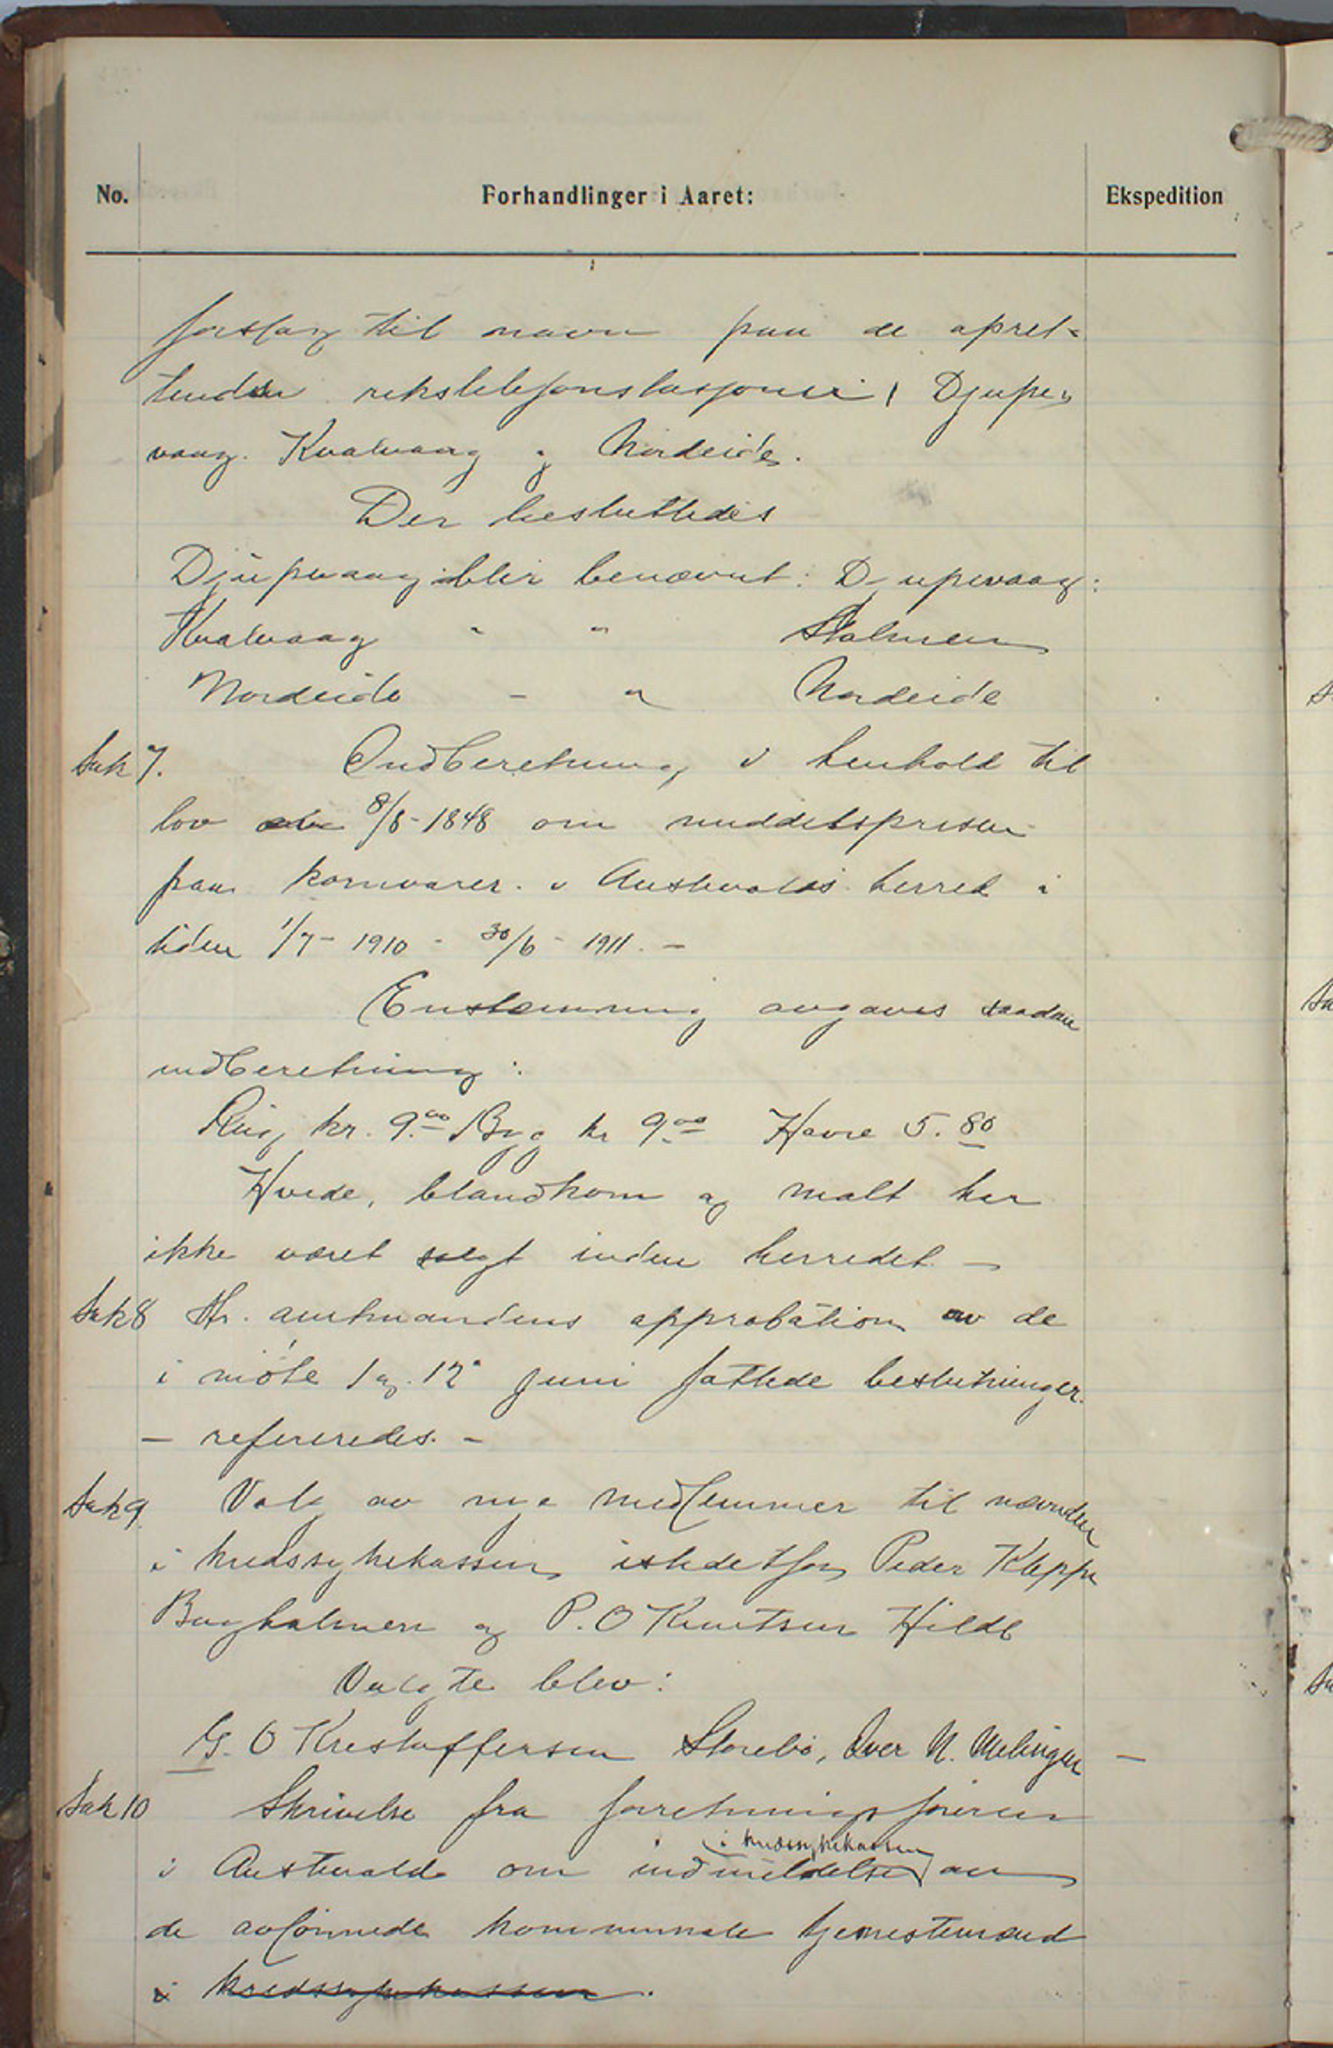 No. Forhandlinger i Aaret: Ekspedition
forslag til navn paa de opret-
tendes rikstelefonstasjoner i Djupe-
vaag. Kvalvaag og Nordeide.
Der besluttedes
Djupevaag blir benævnt: Djupevaag:
Kvalvaag " " Stolmen
Nordeide - " Nordeide
Sak 7. Indberetning i henhold til
lov 8/8-1848 om middelsprisen
paa kornvarer i Austevolds herred i
tiden 1/7-1910 - 30/6-1911. -
Enstemmig avgaves saadan
indberetning:
Rug kr. 9.00 Byg kr 9.00 Havre 5.80
Hvede, blandkorn og malt har
ikke været solgt inden herredet. -
Sak 8 Hr. amtmandens approbation av de
i møte 1 og 12 juni fattede beslutninger.
- refereredes. -
Sak 9. Valg av nye medlemmer til nævnden
i kredssykekassen istedetfor Peder Kleppe
Bugholmen og P. O Knutsen Hilde
Valgte blev:
G. O Kristoffersen Storebø, Iver N. Melingen -
Sak 10 Skrivelse fra forretningsføreren
i kredssykekassen
i Austevold om indmeldelse av
de avlønnede kommunale tjenestemænd
i kredssykekassen.